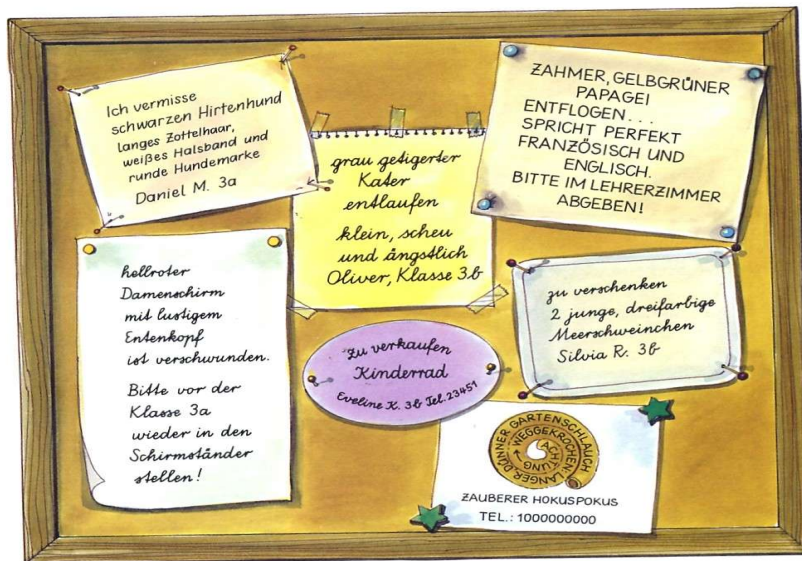 Ich vermisse
schwarzen Hirtenhund
langes Zottelhaar,
weißes Halsband und
runde Hundemarke
Daniel M. 3a
grau getigerter
Kater
entlaufen
klein, scheu
und ängstlich
Oliver, Klasse 3.b
ZAHMER, GELBGRÜNER
PAPAGEI
ENTFLOGEN...
SPRICHT PERFEKT
FRANZÖSISCH UND
ENGLISCH.
BITTE IM LEHRERZIMMER
ABGEBEN!
hellroter
Damenschirm
mit lustigem
Entenkopf
ist verschwunden.
Bitte vor der
Klasse 3a
wieder in den
Schirmständer
stellen!
Zu verkaufen
Kinderrad
Eveline K. 3b Tel. 23451
zu verschenken
2 junge, dreifarbige
Meerschweinchen
Silvia R. 3b
ACHTUNG
WEGGEKROCHEN: LANGER, DÜNNER GARTENSCHLAUCH
ZAUBERER HOKUSPOKUS
TEL.: 1000000000